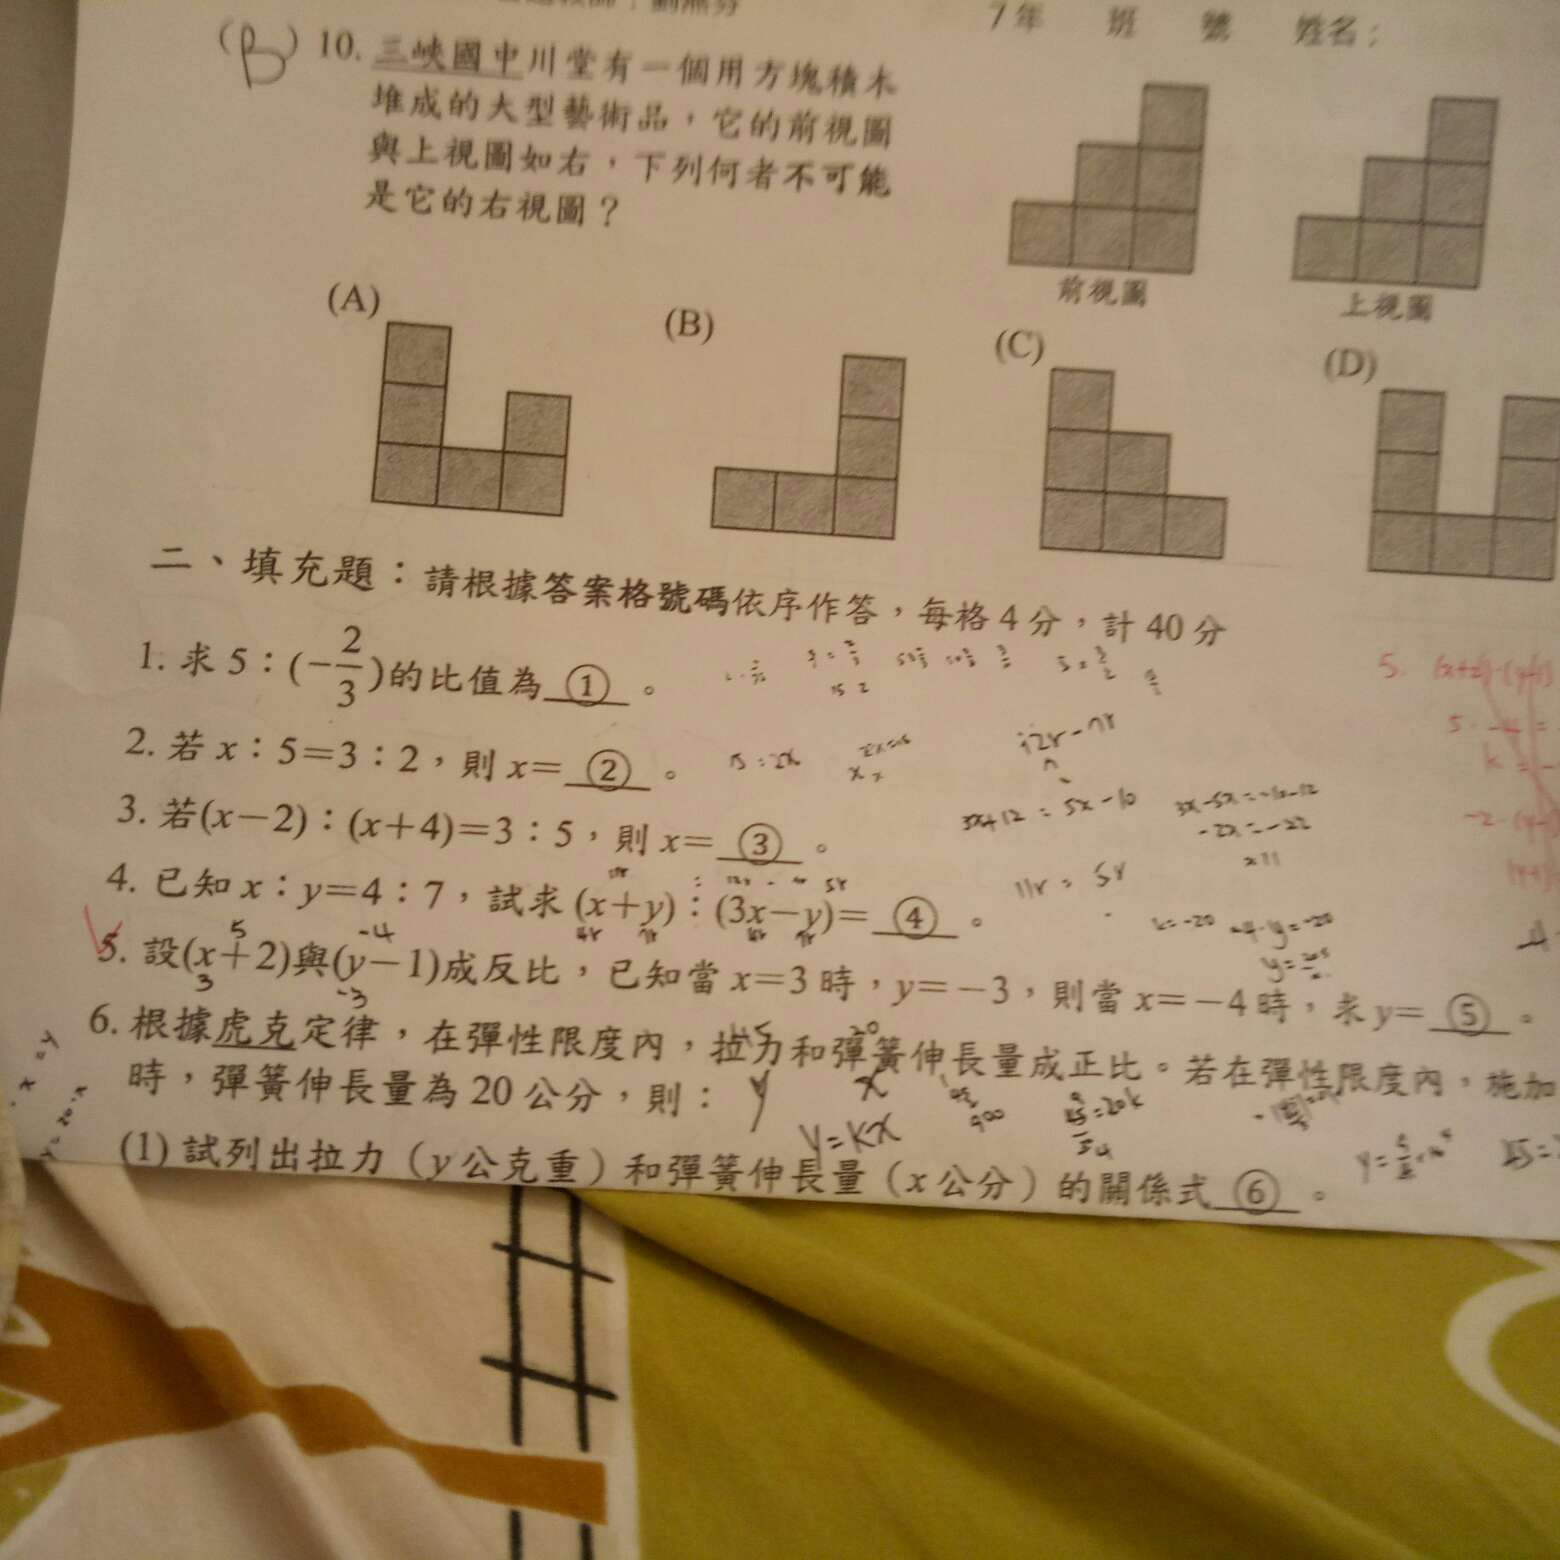 7年 班 號 姓名：
(B) 10. 三峽國中川堂有一個用方塊積木
堆成的大型藝術品，它的前視圖
與上視圖如右，下列何者不可能
是它的右視圖？
前視圖 上視圖
(A) (B) (C) (D)
二、填充題：請根據答案格號碼依序作答，每格4分，計40分
1. 求 5：(−2/3)的比值為 ① 。
2. 若 x：5＝3：2，則 x＝ ② 。
15=2x
3. 若(x−2)：(x+4)＝3：5，則 x＝ ③ 。
3x+12=5x-10
-2x=-22
4. 已知 x：y＝4：7，試求 (x+y)：(3x−y)＝ ④ 。
11r=5r
5 -4
5. 設(x+2)與(y−1)成反比，已知當 x＝3 時，y＝−3，則當 x＝−4 時，求 y＝ ⑤ 。
3 -3
k=-20
6. 根據虎克定律，在彈性限度內，拉力和彈簧伸長量成正比。若在彈性限度內，施加
時，彈簧伸長量為 20 公分，則：
y x
y=kx
(1) 試列出拉力（y公克重）和彈簧伸長量（x公分）的關係式 ⑥ 。